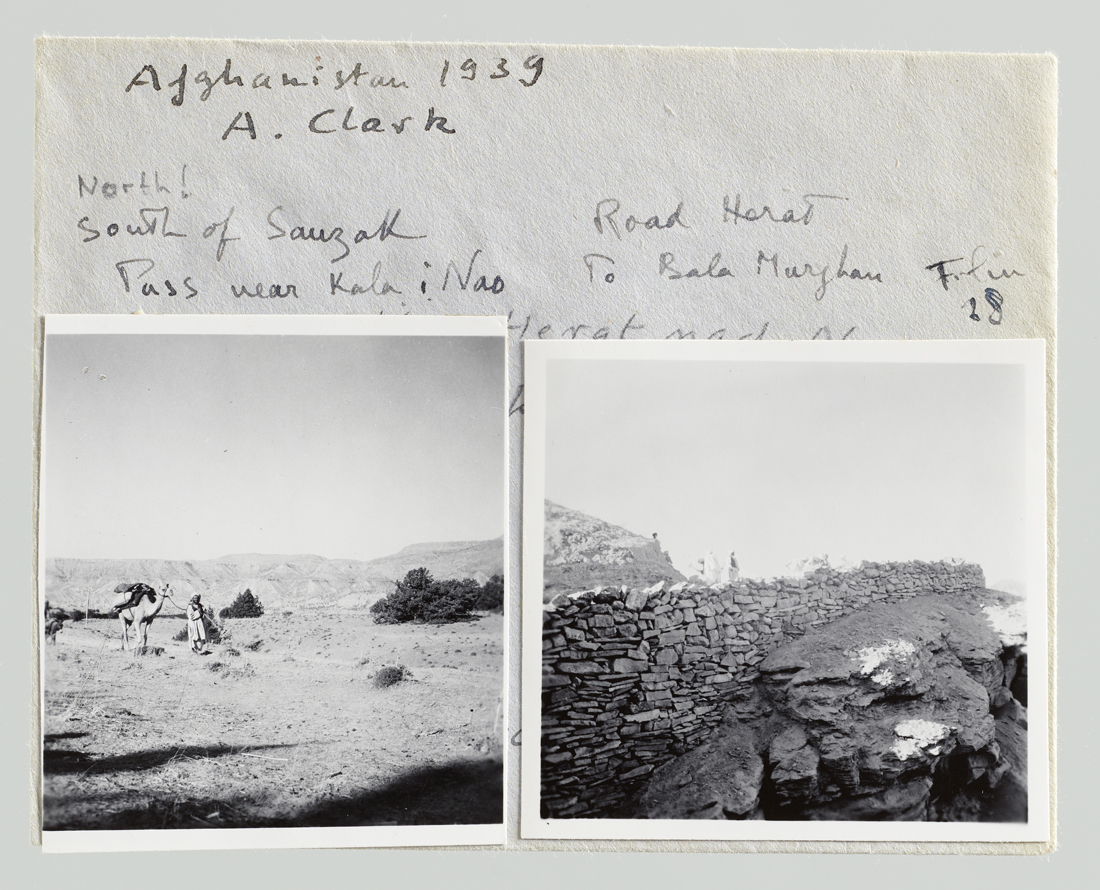 Afghanistan 1939
A. Clark
North!
South of Sauzak
Pass near Kala i Nao
Road Herat
To Bala Murghan
28
Herat